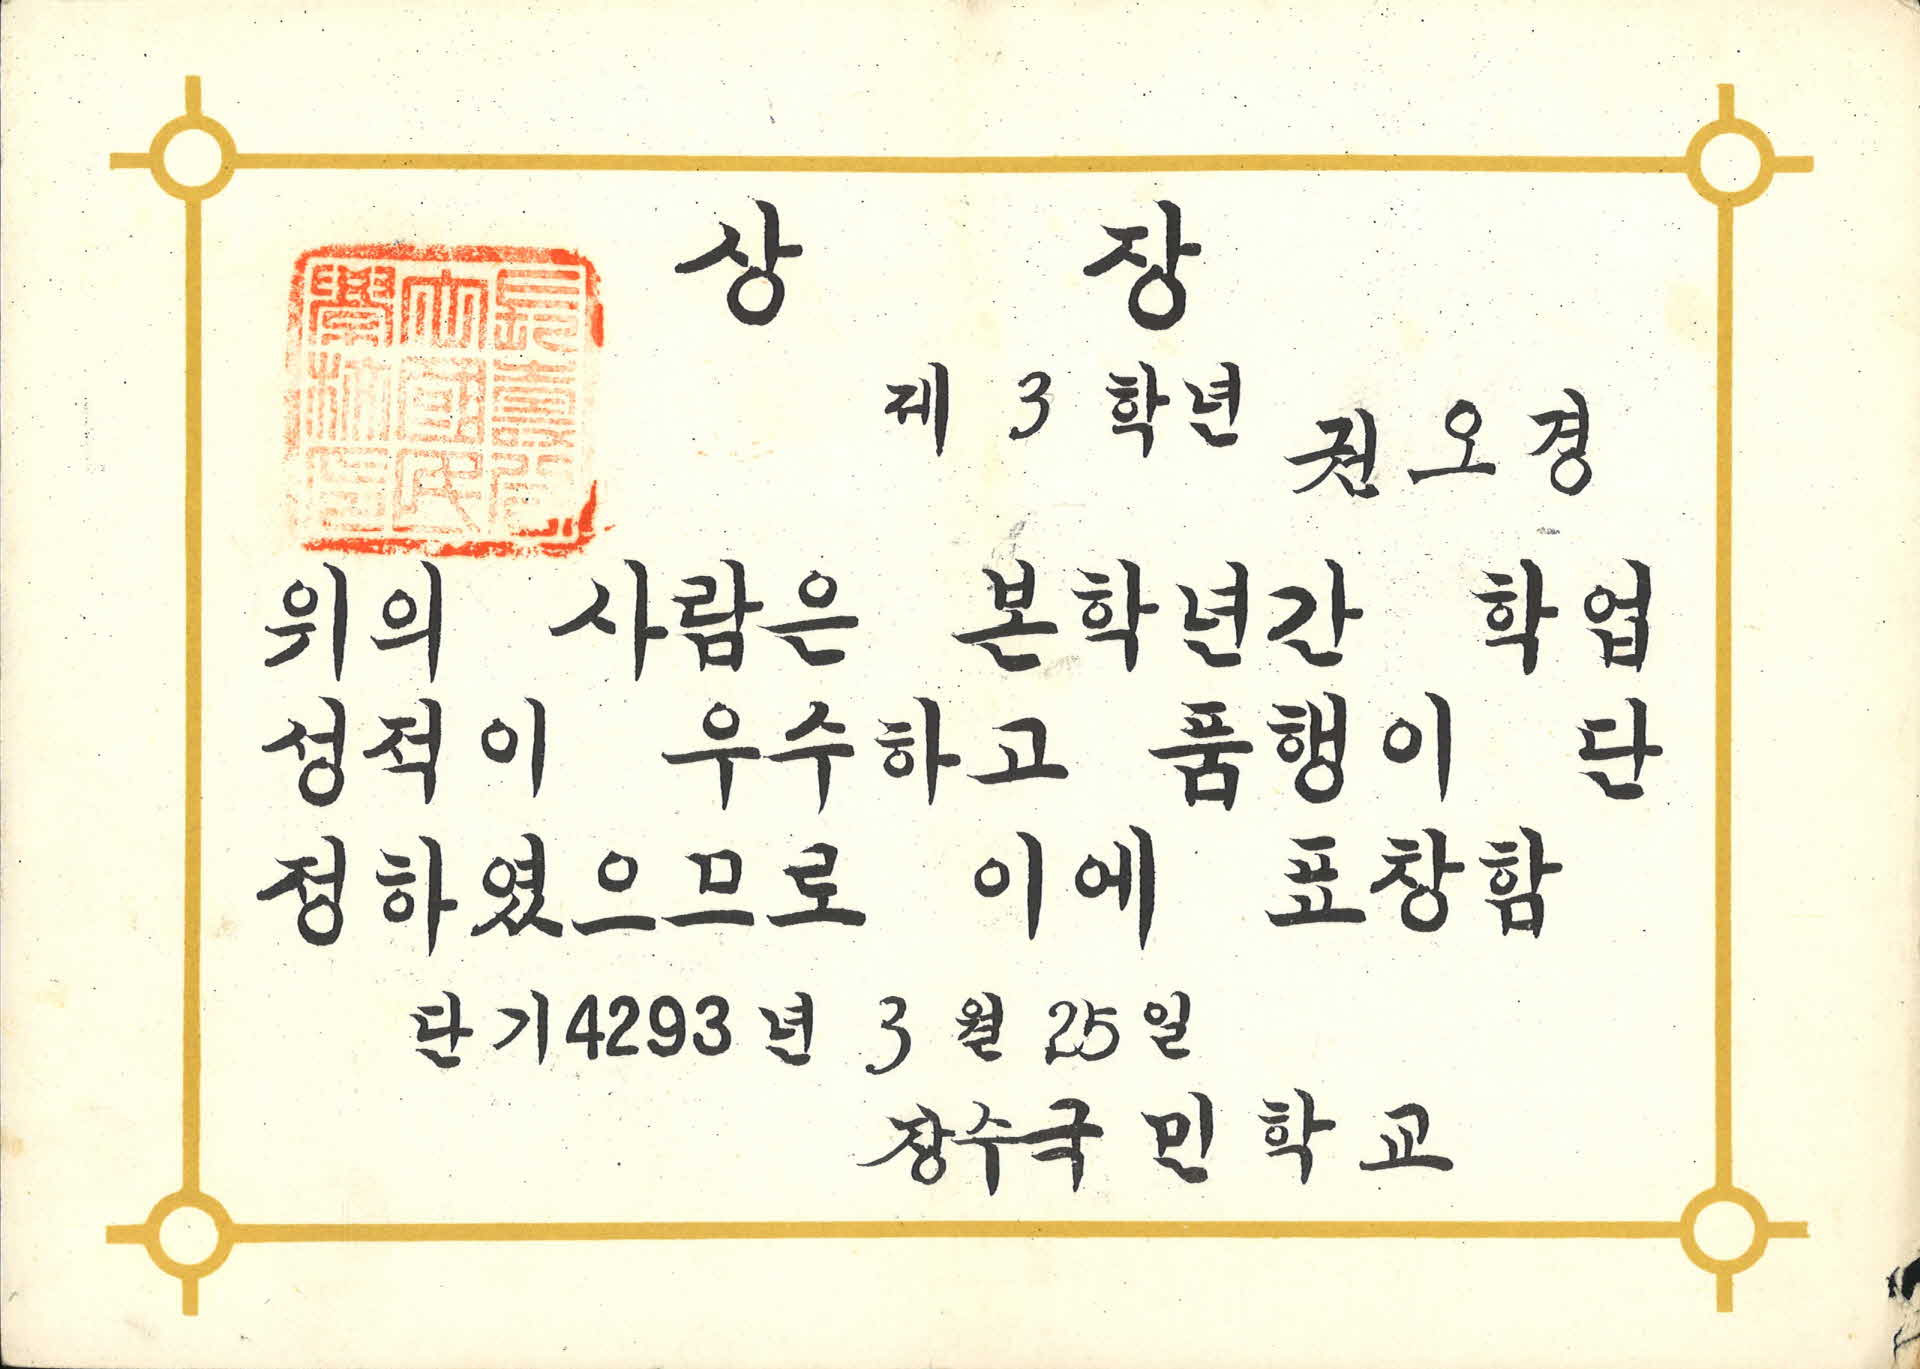 상장
제 3 학년 권오경
위의 사람은 본학년간 학업
성적이 우수하고 품행이 단
정하였으므로 이에 표창함
단기4293년 3월 25일
장수국민학교